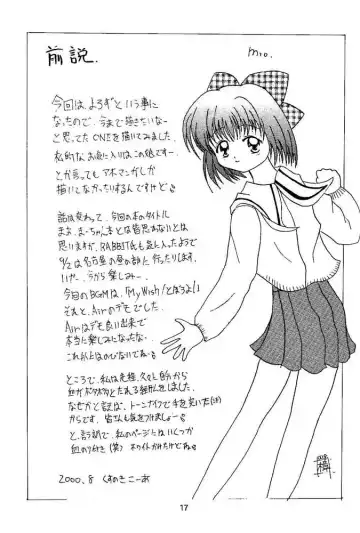 前説.
mio.
今回は、よろずという事に
なったので、今まで描きたいなー
と思ってたONEを描いてみました.
私的なお気に入りはこの娘ですー.
とか言ってもアホマンガしか
描いてなかったりするんですけど
話は変わって、今回の本のタイトル
まさ、まーちゃん本とは皆思わないとは
思いますが、RABBIT氏も気に入ったようで
9/2は名古屋の昼の部に行ったりします.
いやー、今から楽しみー.
今回のBGMは、「My Wish」とぼうよい
それと、Airのデモでした.
Airはデモも良い出来で
本当に楽しみになったなー、
これ以上はのびないでねー
ところで、私は先程、久々に指から
血がボタボタとたれる経験をしました.
なぜかと言えば、トーンナイフで手を突いた(泣)
からです. 皆さんも気をつけましょー
と、言う訳で、私のページにはいくつか
血の跡が付き(笑) ホワイトかけたけどねー
2000.8 くすのきこーあ
17